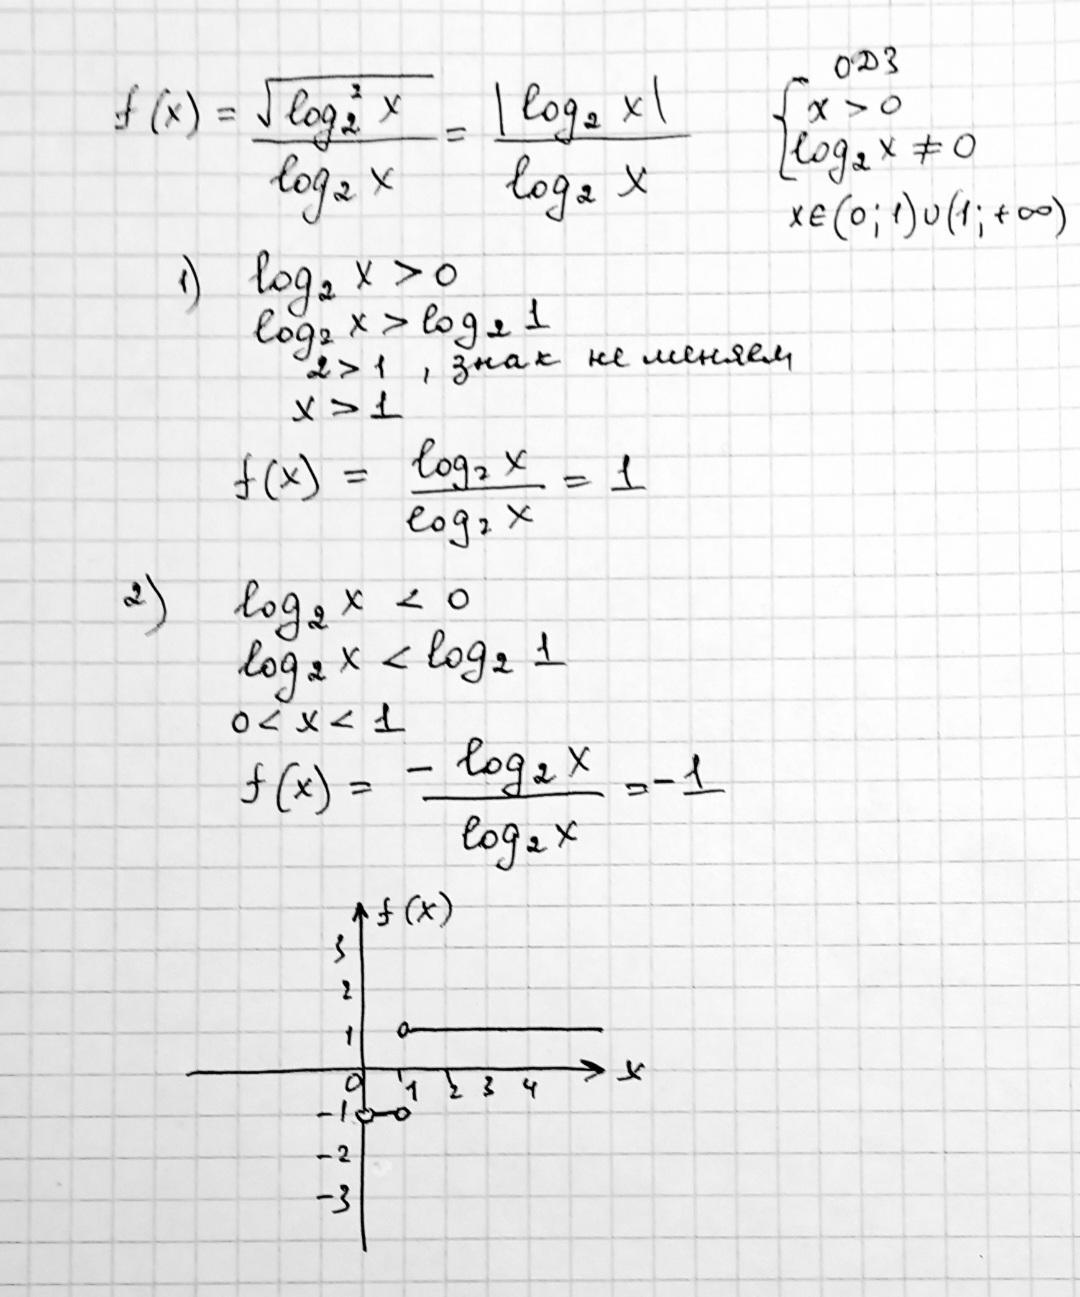 f(x) = √(log₂² x) / log₂ x = |log₂ x| / log₂ x
ОДЗ
{ x > 0
log₂ x ≠ 0
x∈(0;1)∪(1;+∞)
1) log₂ x > 0
log₂ x > log₂ 1
2 > 1 , знак не меняем
x > 1
f(x) = log₂ x / log₂ x = 1
2) log₂ x < 0
log₂ x < log₂ 1
0 < x < 1
f(x) = - log₂ x / log₂ x = -1
f(x)
3
2
1
x
0 1 2 3 4
-1
-2
-3